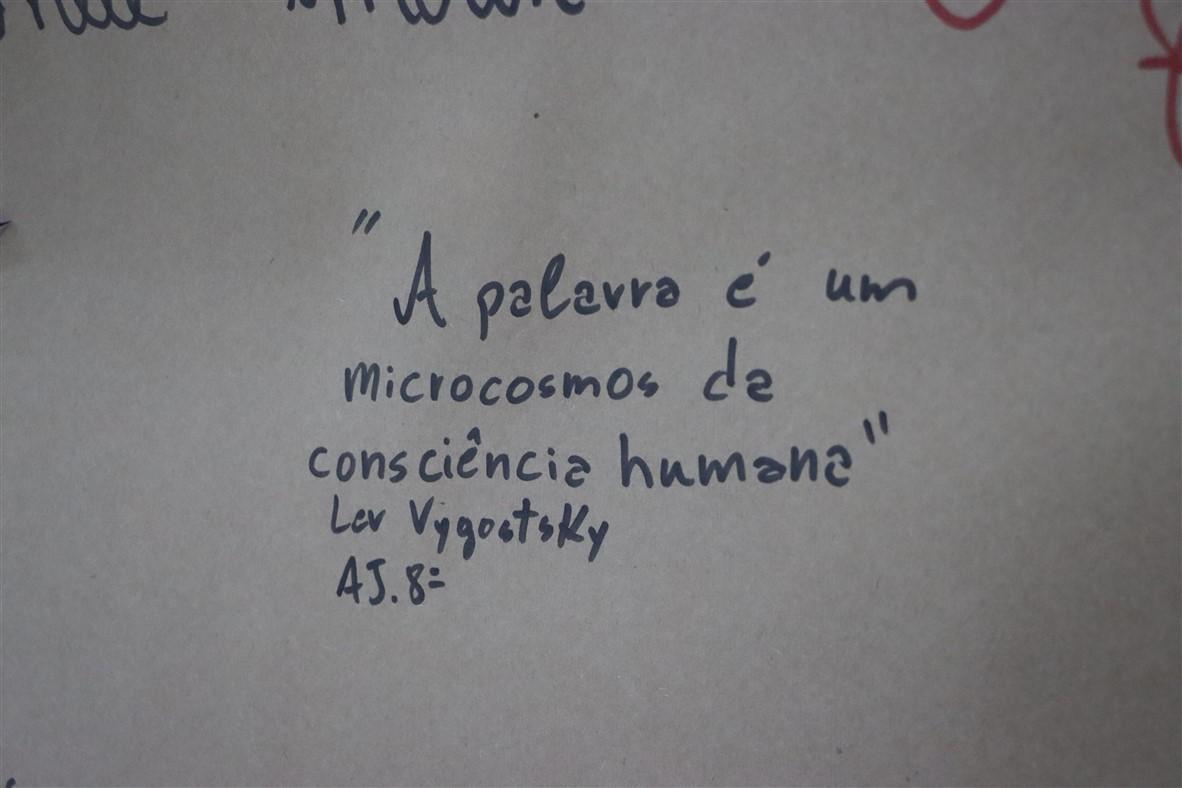 "A palavra é um
microcosmos da
consciência humana"
Lev Vygostsky
AJ. 8=